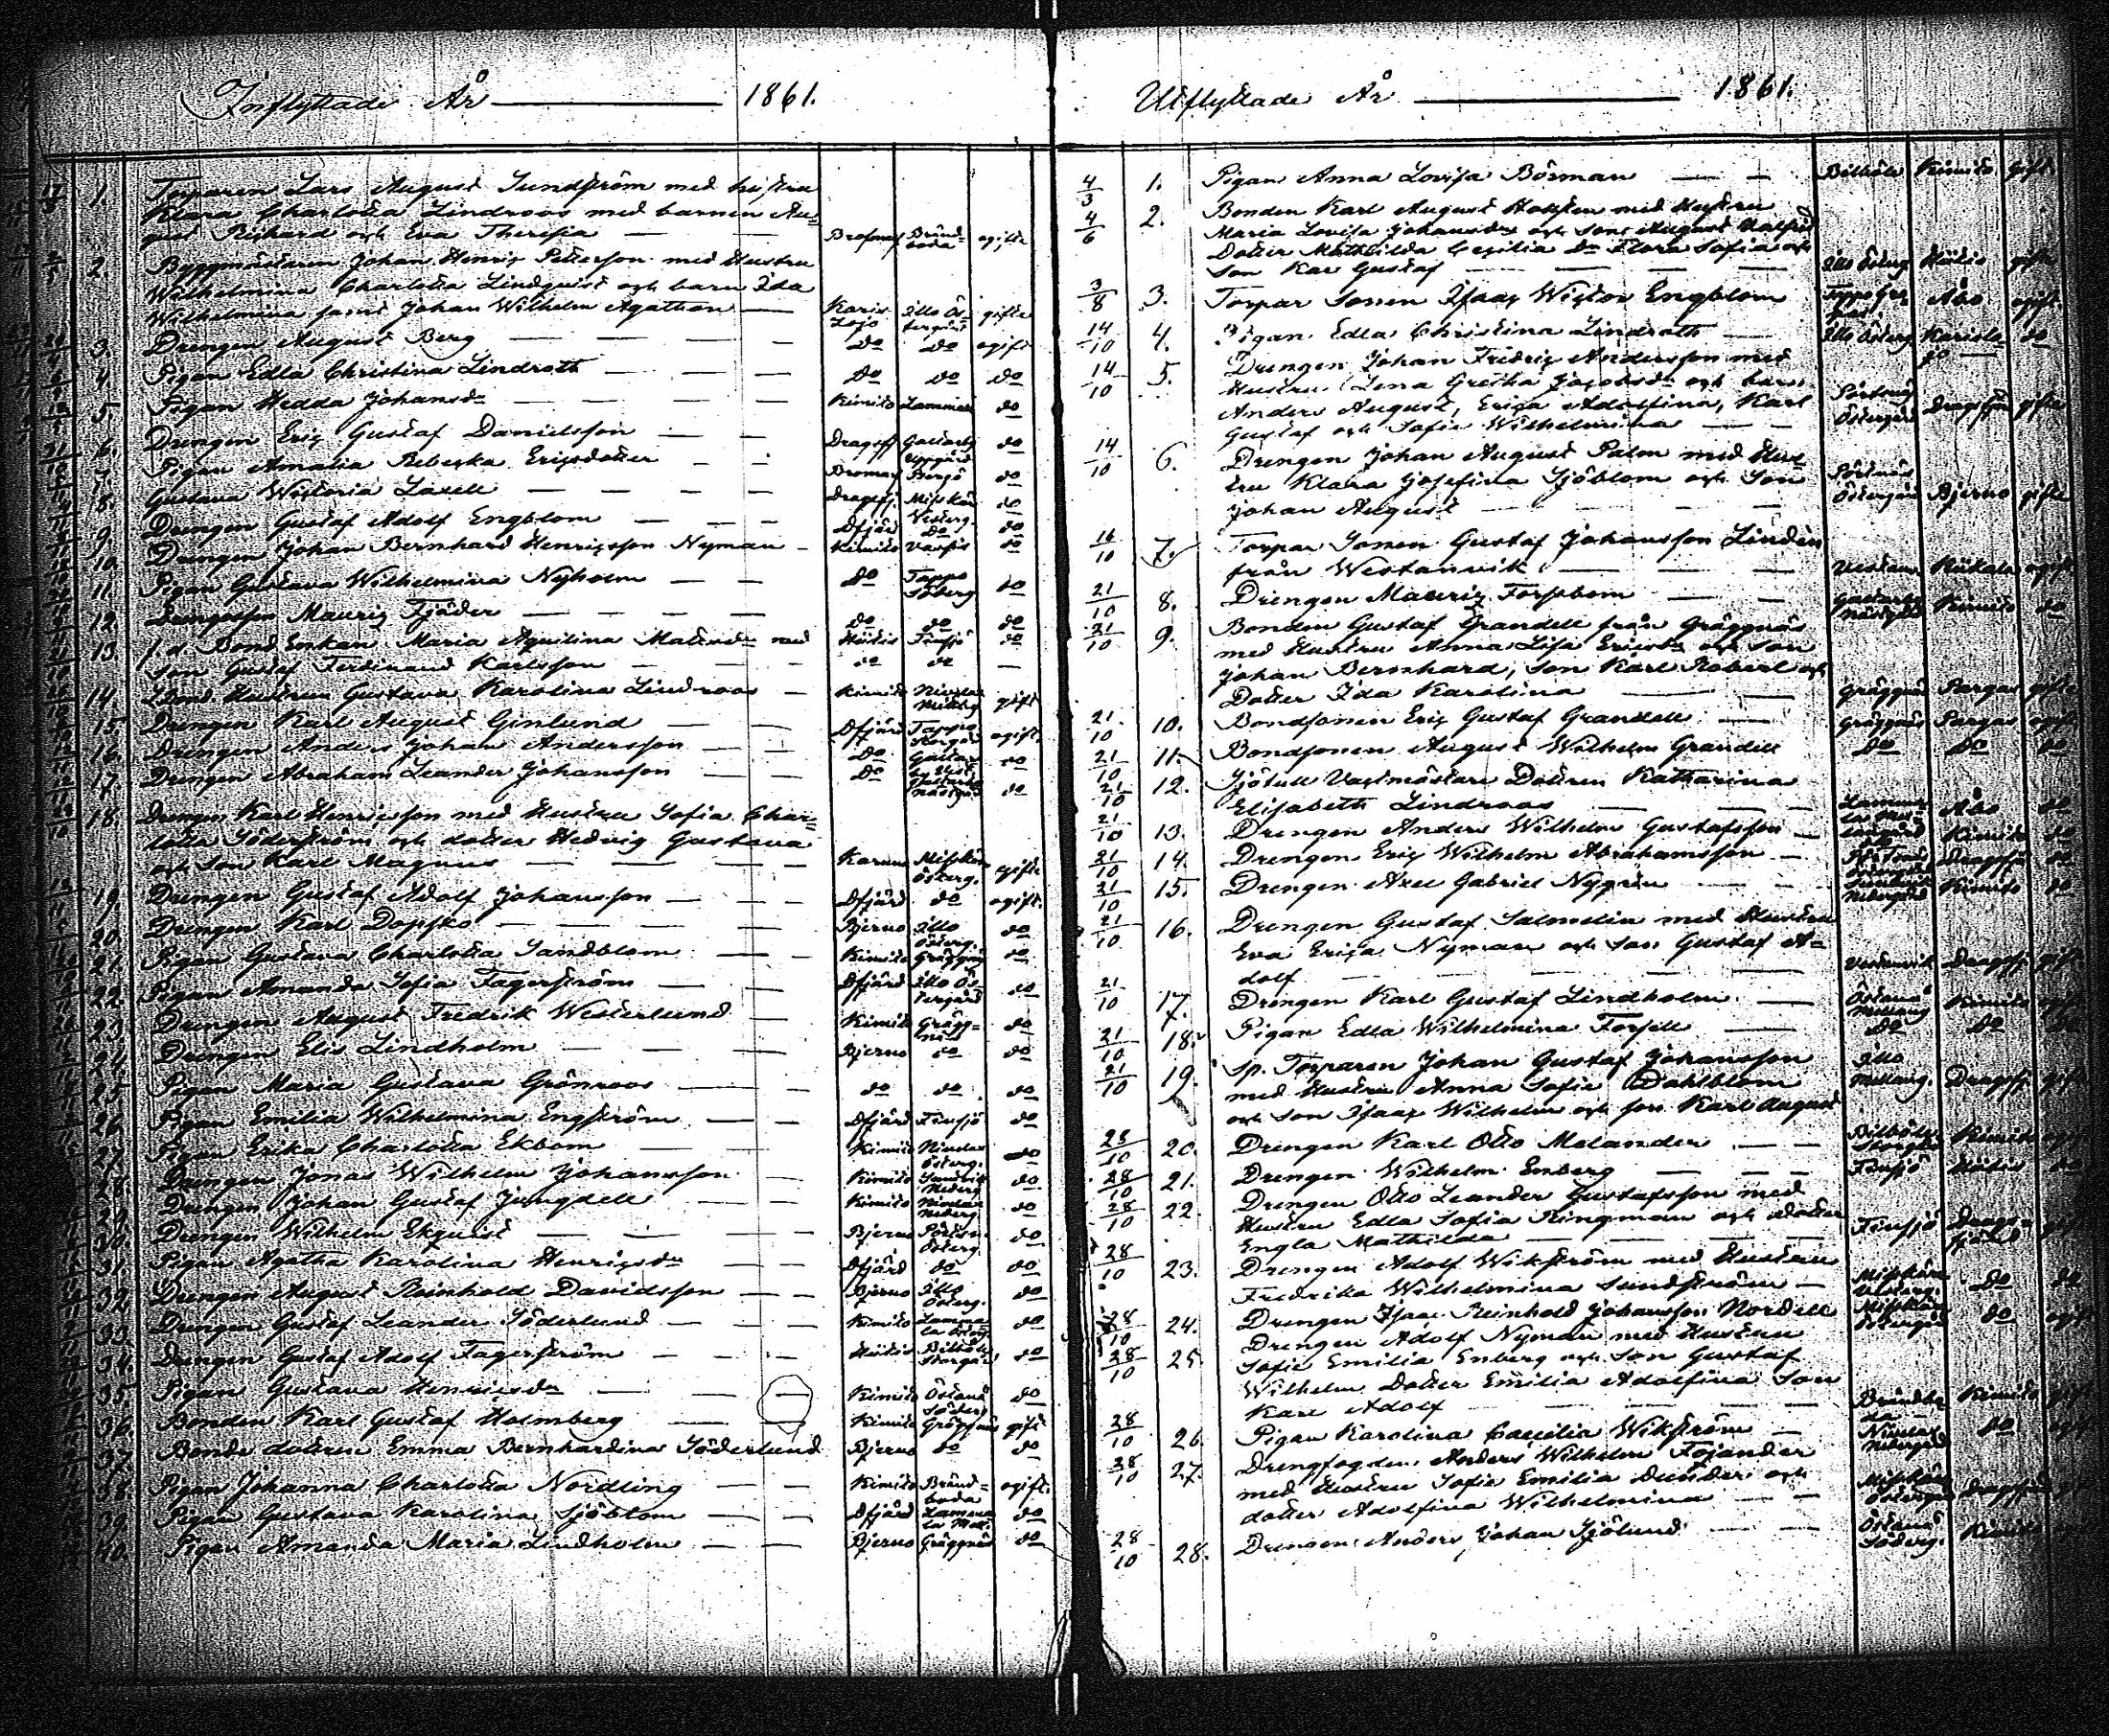 Inflyttade År 1861.
1. Torparen Lars August Sundström med hustru
Klara Charlotta Lindroos med barnen Au=
gust Richard och Eva Theresia Bromarf Bränd=boda ogifte
2. Byggmästaren Johan Henric Petterson med Hustru
Wilhelmina Charlotta Lindquist och barn Ida
Wilhelmina samt Johan Wilhelm Agathon Karis Lojo Illo Östergård gifte
3. Drengen August Berg do do ogift
4. Pigan Edla Christina Lindroth do do do
5. Pigan Hedda Johansdr Kimito do
6. Drengen Eric Gustaf Danielsson Dragsfj do
7. Pigan Amalia Rebecka Ericsdotter Bromarf do
8. Gustava Wictoria Laxell Dragsfj. do
9. Drengen Gustaf Adolf Engblom Dfjärd do do
10. Drengen Johan Bernhard Henricsson Nyman Kimito do
11. Pigan Gustava Wilhelmina Nyholm do Tappo Söderg do
12. Mauriz Fjäder do do do
13. f.d. Bond Enkan Maria Aquilina Matsdr med Hitis Finsjö do
Son Gustaf Ferdinand Karlsson do do —
14. Bond Hustrun Gustava Karolina Lindroos Kimito gift
15. Drengen Karl August Ginlund Dfjärd Tappo ogift.
16. Drengen Anders Johan Andersson do do
17. Drengen Abraham Leander Johansson do do
18. Drengen Karl Henricsson med Hustru Sofia Char=
lotta Söderström och dotter Hedvig Gustava
och Son Karl Magnus Karuna Misskär Österg. gifte
19. Drengen Gustaf Adolf Johansson Dfjärd do ogift.
20. Drengen Karl Bjerno Illo Österg. do
21. Pigan Gustava Charlotta Sandblom Kimito Gräggnäs do
22. Pigan Amanda Sofia Fagerström Dfjärd Illo Östergård do
23. Drengen August Fredrik Westerlund Kimito Grägg=näs do
24. Drengen Elis Lindholm Bjerno do do
25. Pigan Maria Gustava Grönroos do do do
26. Pigan Emilia Wilhelmina Engström Dfjärd Finsjö do
27. Pigan Erika Charlotta Ekbom Kimito Österg. do
28. Drengen Jonas Wilhelm Johansson Kimito do
29. Drengen Johan Gustaf Jungdell Kimito do
30. Drengen Wilhelm Ekquist Bjerno Österg. do
31. Pigan Agatha Karolina Henricsdr Dfjärd do do
32. Drengen August Reinhold Davidsson Bjerno Illo Österg. do
33. Drengen Gustaf Leander Söderlund Kimito do
34. Drengen Gustaf Adolf Fagerström Hitis do
35. Pigan Gustava Henricsdr Kimito Östanå Söderg do
36. Bonden Karl Gustaf Holmberg Kimito Gräggnäs gift
37. Bonde dottren Emma Bernhardina Söderlund Bjerno do do
38. Pigan Johanna Charlotta Nordling Kimito Bränd=boda ogift.
39. Pigan Gustava Karolina Sjöblom Dfjärd do
40. Pigan Amanda Maria Lindholm Bjerno Gräggnäs do
Utflyttade År 1861.
4/3 1. Pigan Anna Lovisa Börman Kimito gift.
4/6 2. Bonden Karl August med Hustru
Maria Lovisa Johansdr och Son August Walfrid
Dotter Mathilda Cecilia do Flora Sofia och
Son Kar Gustaf Illo Österg Hitis gifte
3/8 3. Torpar Sonen Isaac Wictor Engblom Åbo ogift.
14/10 4. Pigan Edla Christina Lindroth Illo Österg Karislojo do
14/10 5. Drengen Johan Fredric Andersson med
Hustru Lena Gretha Jacobsdr och barn
Anders August, Erica Adolfina, Karl
Gustaf och Sofia Wilhelmina Östergård Dragsfjärd gifte
14/10 6. Drengen Johan August Palm med Hus=
tru Klara Josefina Sjöblom och Son
Johan August Östergård Bjerno gifte
16/10 7. Torpar Sonen Gustaf Johansson Lindén
från Westanvik ogift
21/10 8. Drengen Mauriz Forsbom Kimito do
21/10 9. Bonden Gustaf Grandell från Gräggnäs
med Hustru Anna Lisa Ericsdr och Son
Johan Bernhard, Son Karl Robert och
Dotter Ida Karolina Gräggnäs Pargas gifte
21/10 10. Bondsonen Eric Gustaf Grandell Gräggnäs Pargas ogift
21/10 11. Bondsonen August Wilhelm Grandell do do do
21/10 12. Sjötull Vaktmästare Dottren Katharina
Elisabeth Lindroos Åbo do
21/10 13. Drengen Anders Wilhelm Gustafsson Kimito do
21/10 14. Drengen Eric Wilhelm Abrahamsson Dragsfj do
21/10 15. Drengen Axel Gabriel Nygren Kimito do
21/10 16. Drengen Gustaf Salmelin med Hustru
Eva Erica Nyman och Son Gustaf A=
dolf Dragsfj gift
21/10 17. Drengen Karl Gustaf Lindholm Östanå Mellang Kimito ogift
21/10 18. Pigan Edla Wilhelmina Forsell do do
21/10 19. Sp. Torparen Johan Gustaf Johansson Illo
med Hustru Anna Sofia Dahlblom Mellang. Dragsfj gift
och Son Isaac Wilhelm och son Karl August
28/10 20. Drengen Karl Otto Melander Kimito ogift
28/10 21. Drengen Wilhelm Enberg Finsjö Hitis do
28/10 22. Drengen Otto Leander Gustafsson med
Hustru Edla Sofia Ringman och dotter
Engla Mathilda Finsjö Dragsfjärd
28/10 23. Drengen Adolf Wikström med Hustru
Fredrika Wilhelmina Sundström do do
28/10 24. Drengen Isaac Reinhold Johansson Nordell do ogift
28/10 25. Drengen Adolf Nyman med Hustru
Sofie Emilia Enberg och Son Gustaf
Wilhelm Dotter Emilia Adolfina Son
Karl Adolf Kimito
28/10 26. Pigan Karolina Cecilia Wikström do
28/10 27. Drengfogden Anders Wilhelm Fojander
med Hustru Sofia Emilia och
dotter Adolfina Wilhelmina Östergård Dragsfjärd
28/10 28. Drengen Anders Johan Sjölund Östanå Söderg. Kimito